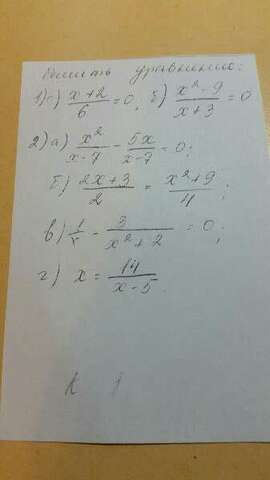 Решить уравнения:
1) а) x+2/6 = 0; б) x²-9/x+3 = 0
2) а) x²/x-7 - 5x/x-7 = 0;
б) 2x+3/2 = x²+9/4;
в) 1/x - 3/x²+2 = 0;
г) x = 14/x-5.